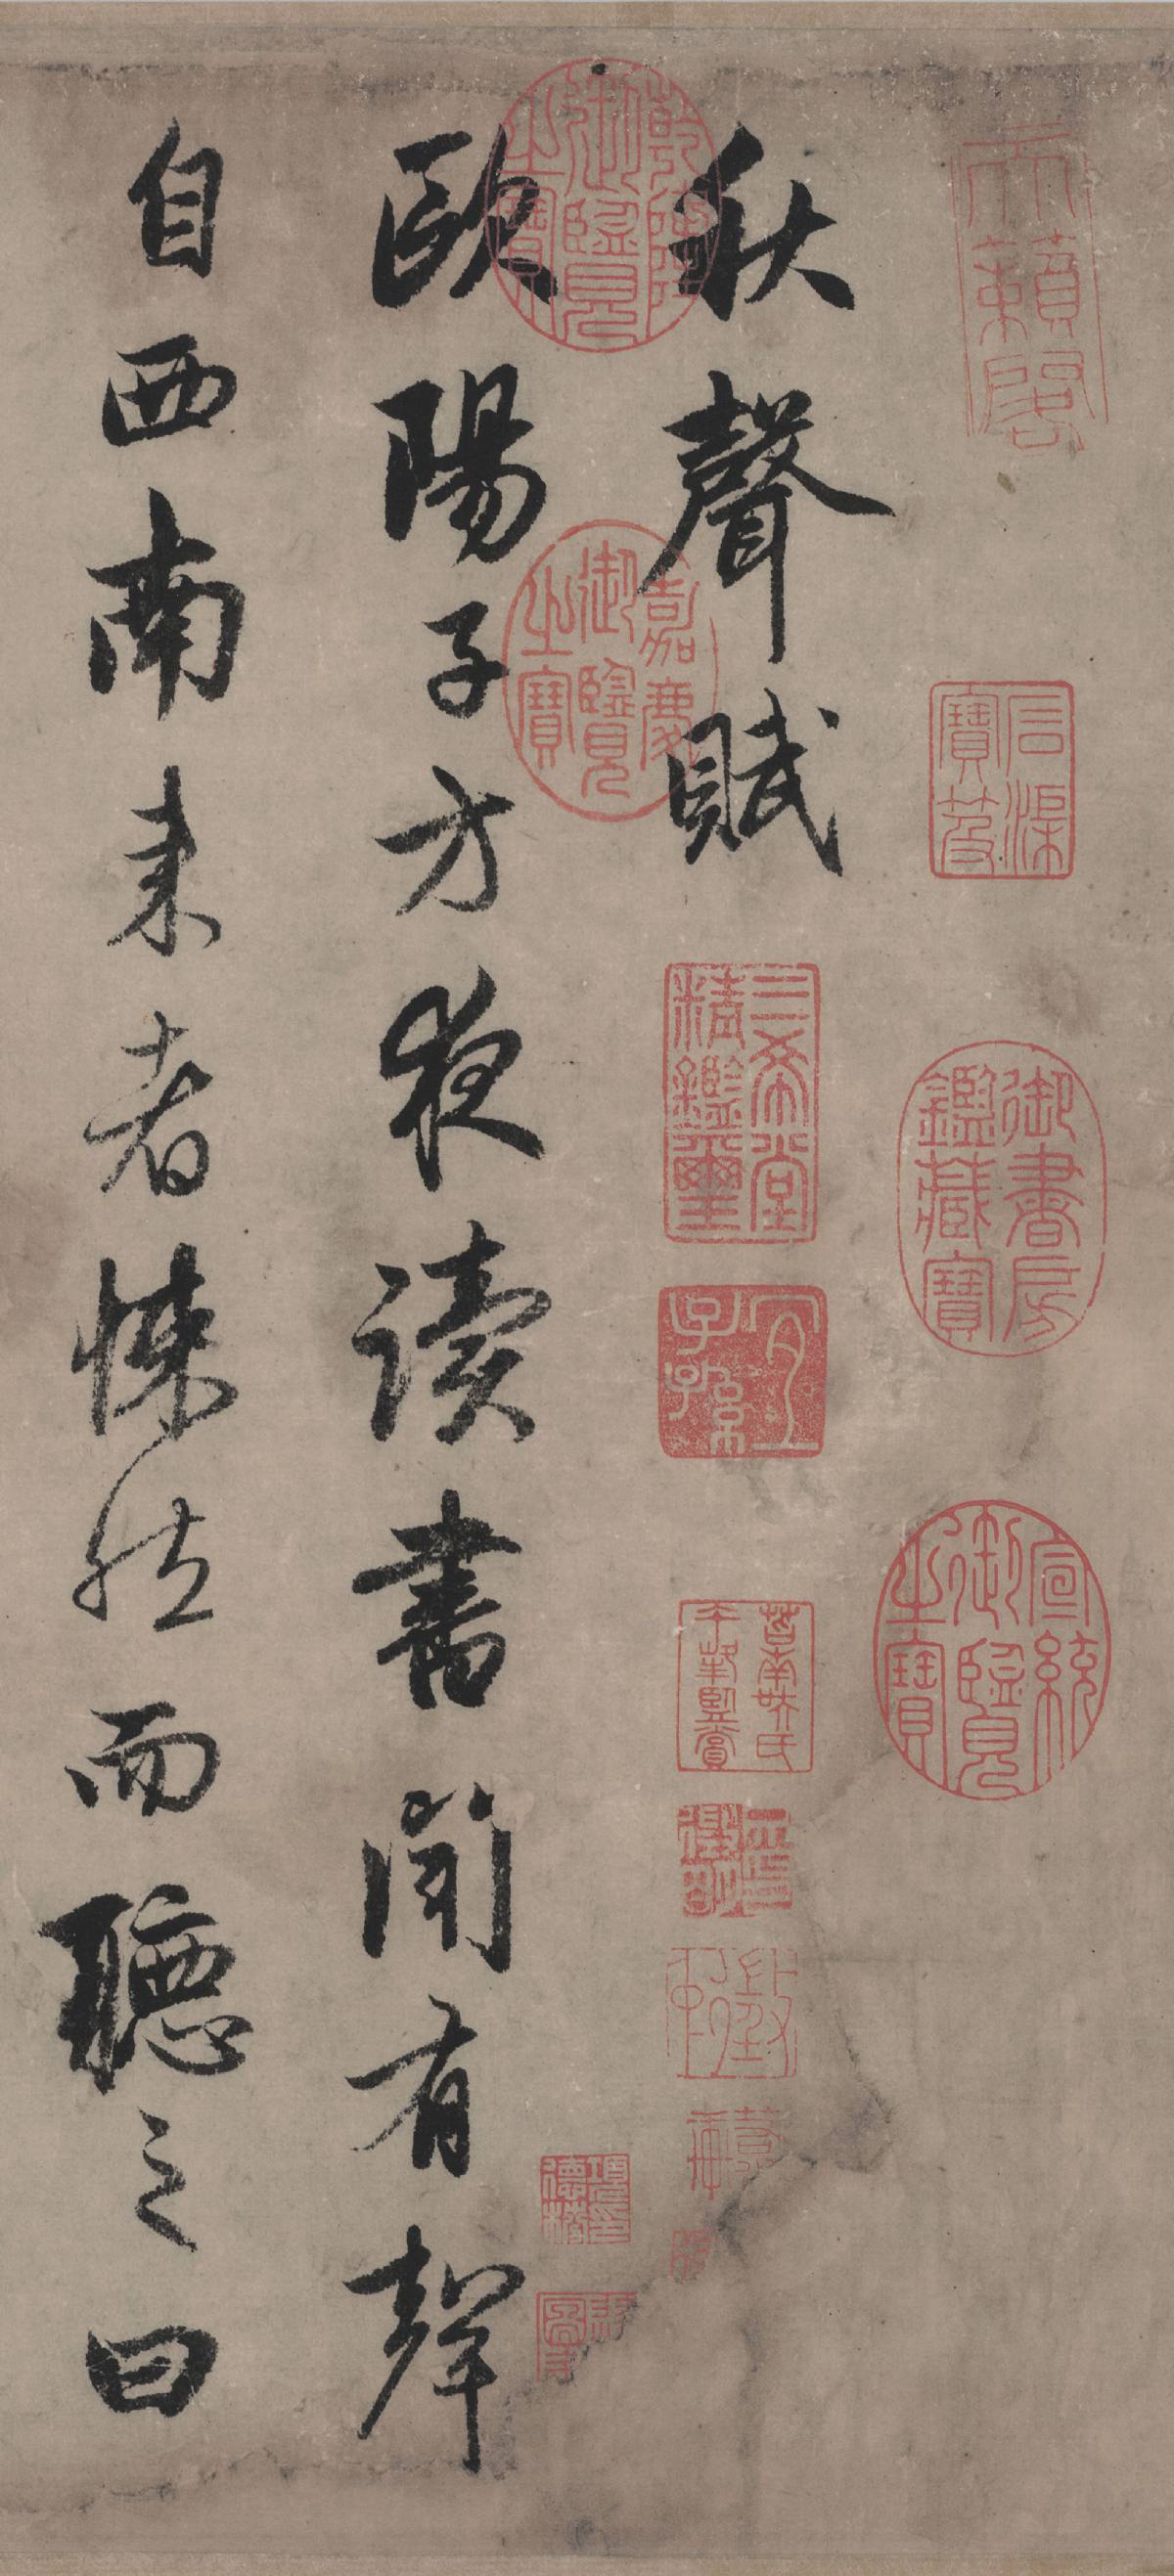 天籟閣
石渠寶笈
御書房鑑藏寶
宣統御覽之寶
秋聲賦
三希堂精鑑璽
宜子孫
乾隆御覽之寶
嘉慶御覽之寶
歐陽子方夜讀書聞有聲
自西南来者悚然而聽之曰